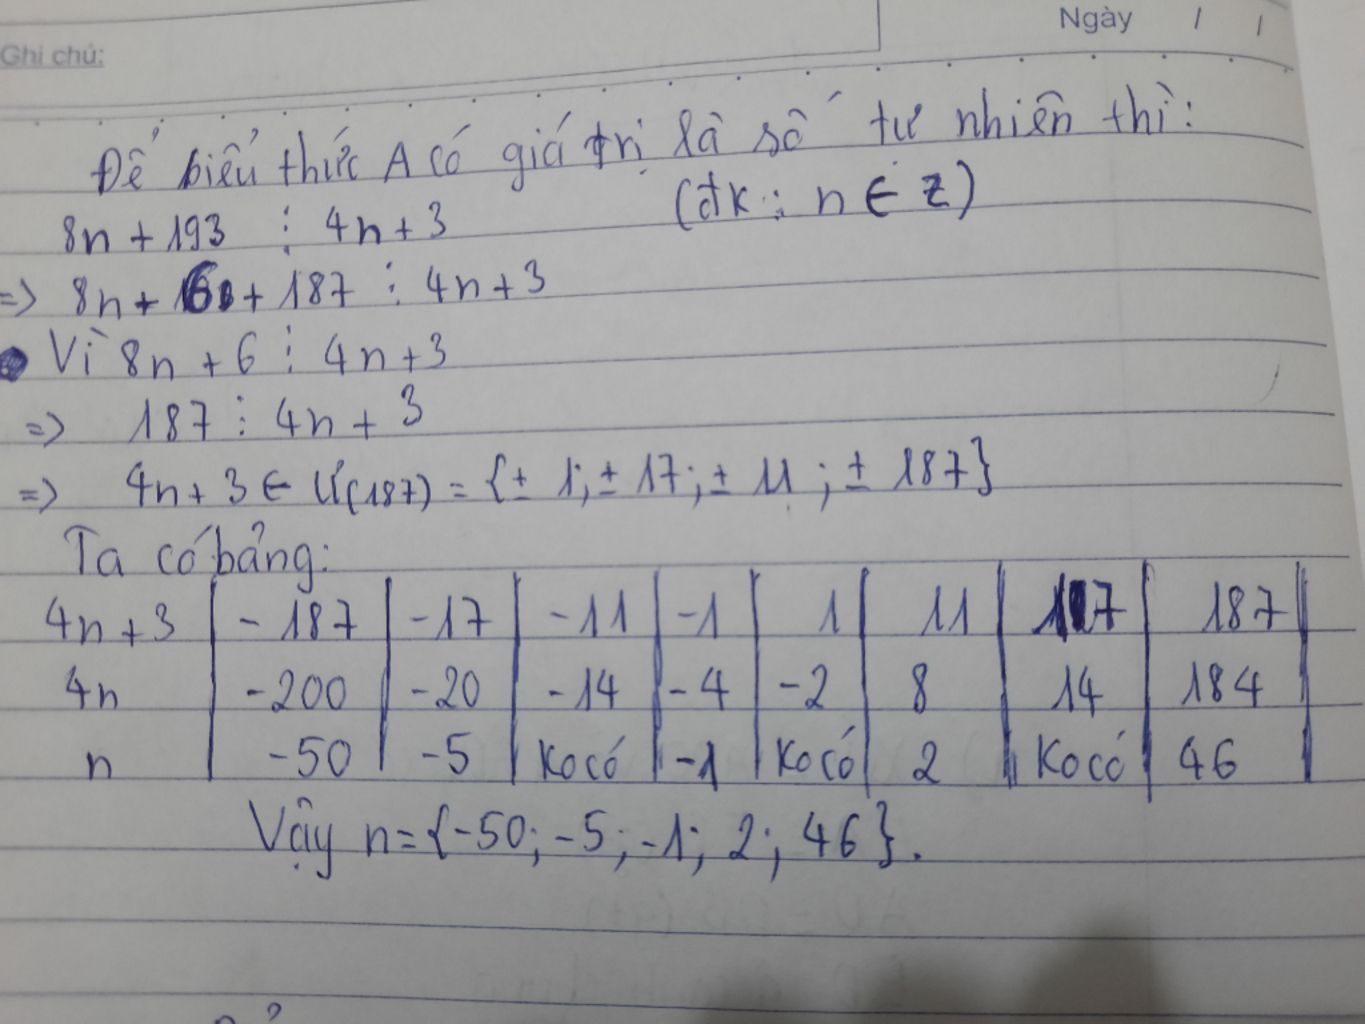 Ngày / /
Ghi chú:
Để biểu thức A có giá trị là số tự nhiên thì:
(đk: n ∈ Z)
8n + 193 ⋮ 4n + 3
=> 8n + 6 + 187 ⋮ 4n + 3
Vì 8n + 6 ⋮ 4n + 3
=> 187 ⋮ 4n + 3
=> 4n + 3 ∈ Ư(187) = {± 1; ± 17; ± 11; ± 187}
Ta có bảng:
4n + 3 | - 187 | -17 | -11 | -1 | 1 | 11 | 17 | 187
4n | -200 | -20 | -14 | -4 | -2 | 8 | 14 | 184
n | -50 | -5 | Ko có | -1 | Ko có | 2 | Ko có | 46
Vậy n = {-50; -5; -1; 2; 46}.